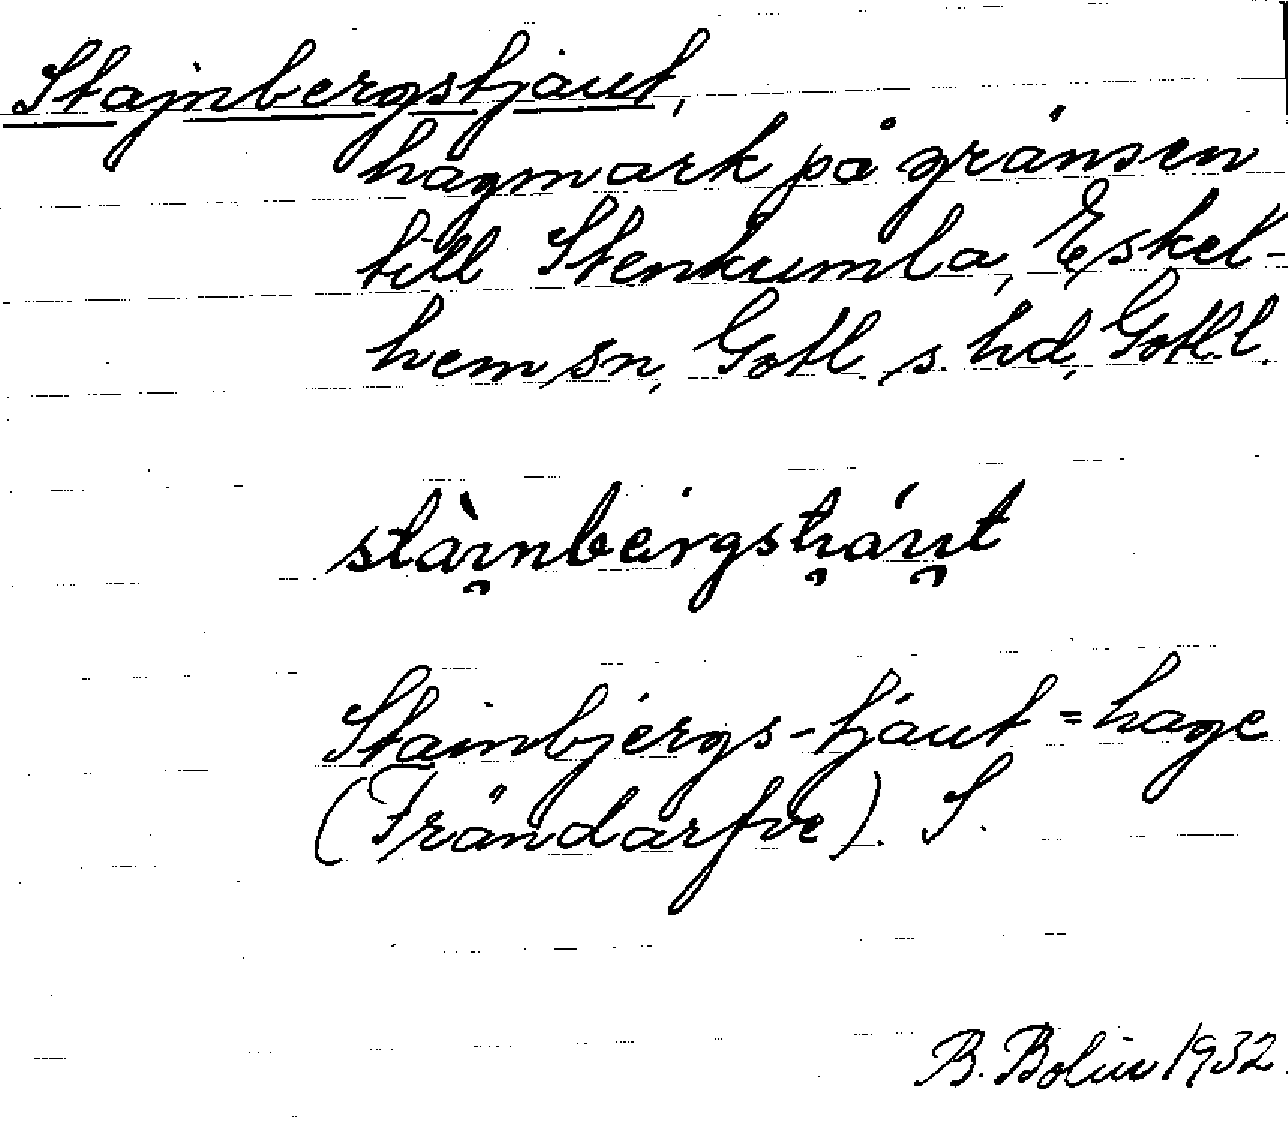 Stajnbergstjaut,
hagmark på gränsen
till Stenkumla, Eskel-
hem sn, Gotl. s. hd, Gotl. l.
stài̯nbergsti̯áu̯t
Stainbjergs-tjaut = hage
(Frändarfve). S.
B. Bolin 1932.